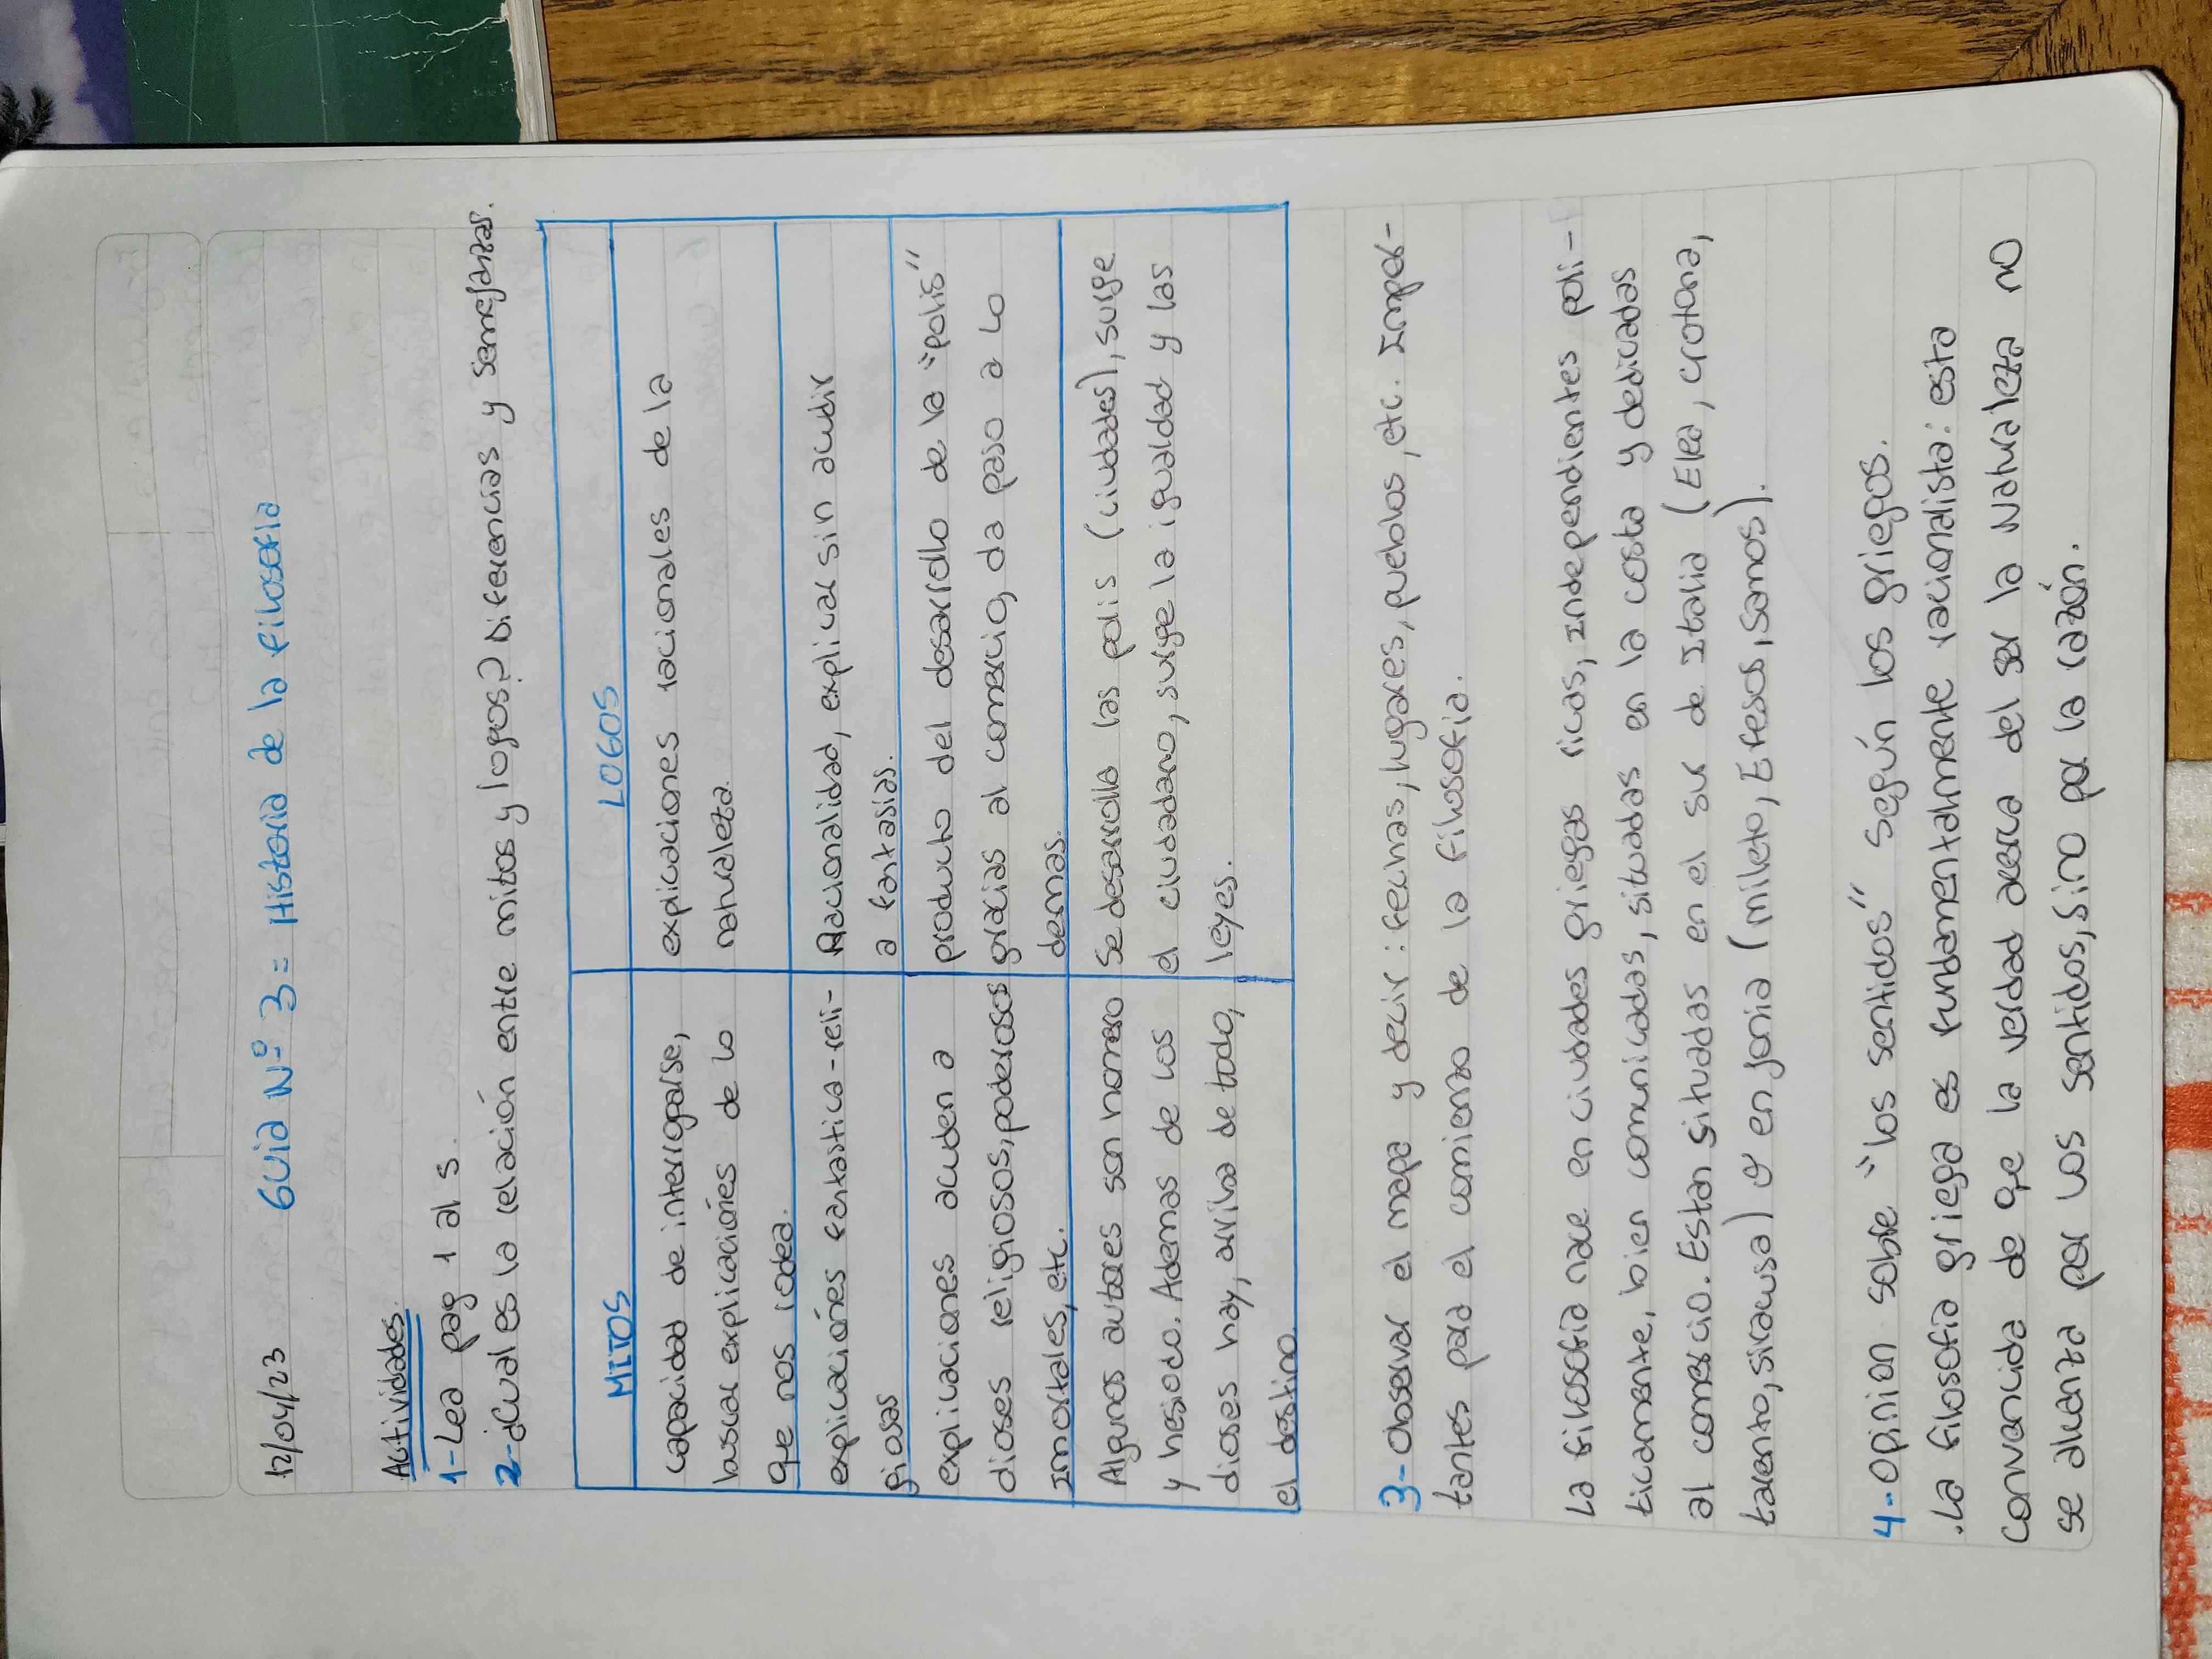 12/04/23 GUIA Nº 3 = Historia de la Filosofia
Actividades
1- Lea pag 1 al 5.
2- ¿Cual es la relación entre mitos y logos? Diferencias y semejanzas.
MITOS
capacidad de interrogarse,
buscar explicaciónes de lo
que nos rodea.
explicaciónes fantastica-reli-
giosas
explicaciones acuden a
dioses religiosos, poderosos
Inmortales, etc.
Algunos autores son homero
y hesiodo. Ademas de los
dioses hay, arriba de todo,
el destino.
LOGOS
explicaciones racionales de la
naturaleza.
Racionalidad, explicar sin acudir
a fantasias.
producto del desarrollo de la "polis"
gracias al comercio, da paso a lo
demas.
Se desarrolla las polis (ciudades), surge
el ciudadano, surge la igualdad y las
leyes.
3- Observar el mapa y decir: fechas, lugares, pueblos, etc. Impor-
tantes para el comienzo de la filosofia.
La filosofia nace en ciudades griegas ricas, independientes poli-
ticamente, bien comunicadas, situadas en la costa y dedicadas
al comercio. Estan situadas en el sur de Italia (Elea, crotona,
tarento, siracusa) y en jonia (mileto, Efesos, samos).
4- Opinion sobre "los sentidos" según los griegos.
.La filosofia griega es fundamentalmente racionalista: esta
convencida de qe la verdad acerca del ser la Naturaleza no
se alcanza por los sentidos, sino por la razón.